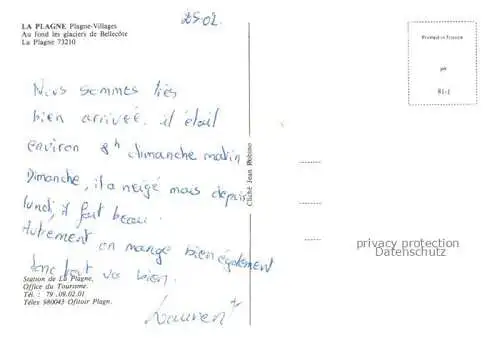 LA PLAGNE Plagne-Villages
Au fond les glaciers de Bellecôte
La Plagne 73210
25.02.
Nous sommes très
bien arrivée. il était
environ 8h dimanche matin
Dimanche, il a neigé mais depuis
lundi, il fait beau.
Autrement on mange bien également
donc tout va bien.
Laurent
Station de La Plagne,
Office du Tourisme.
Tél. : 79.09.02.01
Télex 980043 Ofitour Plagn.
Cliché Jean Robino
Printed in France
81-1
privacy protection
Datenschutz